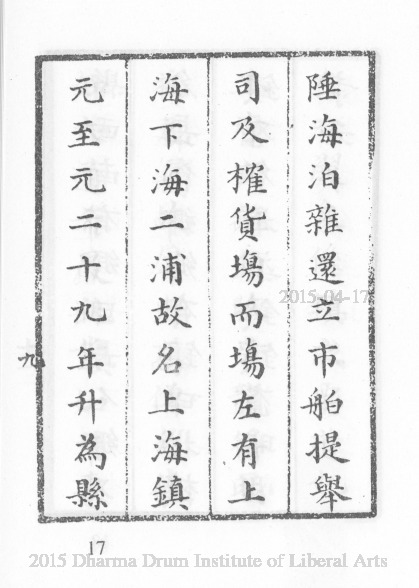 陲海泊雜還立市舶提舉
司及榷貨塲而塲左有上
海下海二浦故名上海鎮
元至元二十九年升為縣
九
17
2015-04-17
2015 Dharma Drum Institute of Liberal Arts